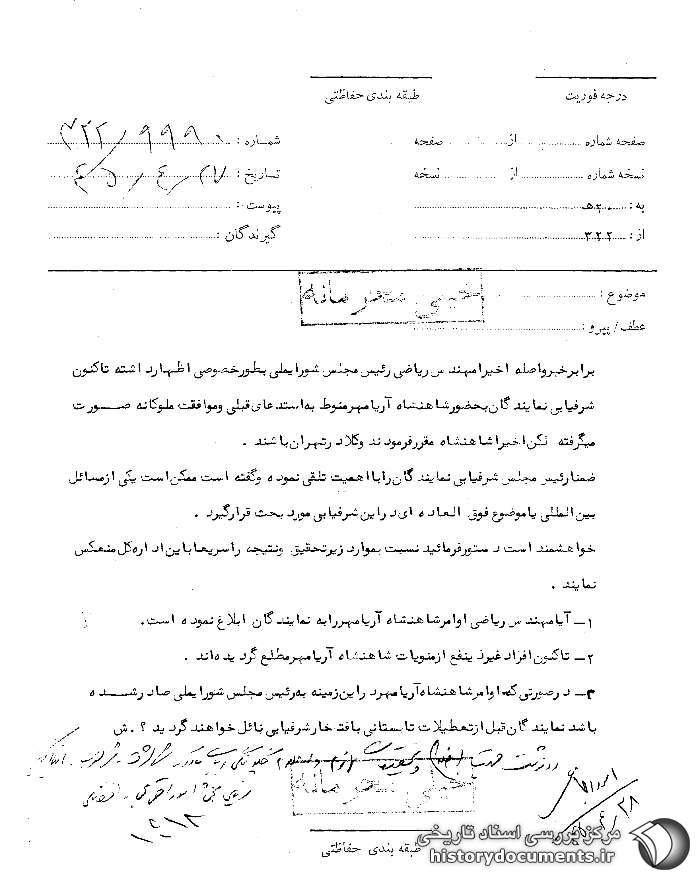 درجه فوریت
طبقه بندی حفاظتی
صفحه شماره ........ از ........ صفحه
شماره : ۳۲۲/۹۹۹۰
نسخه شماره ........ از ........ نسخه
تاریخ : ۴۵/۴/۲۷
به : ۲۰ هـ
پیوست :
از : ۳۲۲
گیرندگان :
موضوع :
خیلی محرمانه
عطف / پیرو :
برابر خبر واصله اخیرا مهندس ریاضی رئیس مجلس شورایملی بطور خصوصی اظهار داشته تاکنون
شرفیابی نمایندگان بحضور شاهنشاه آریامهر منوط به استدعای قبلی و موافقت ملوکانه صورت
میگرفته لکن اخیرا شاهنشاه مقرر فرمودند وکلا در تهران باشند .
ضمنا رئیس مجلس شرفیابی نمایندگان را با اهمیت تلقی نموده و گفته است ممکن است یکی از مسائل
بین المللی یا موضوع فوق العاده ای در این شرفیابی مورد بحث قرار گیرد .
خواهشمند است دستور فرمائید نسبت بموارد زیر تحقیق و نتیجه را سریعا باین اداره کل منعکس
نمایند .
۱ـ آیا مهندس ریاضی اوامر شاهنشاه آریامهر را به نمایندگان ابلاغ نموده است.
۲ـ تاکنون افراد غیر ذینفع از منویات شاهنشاه آریامهر مطلع گردیده اند .
۳ـ در صورتی که اوامر شاهنشاه آریامهر در این زمینه به رئیس مجلس شورایملی صادر شده
باشد نمایندگان قبل از تعطیلات تابستانی بافتخار شرفیابی نائل خواهند گردید ؟ . ش
خیلی محرمانه
طبقه بندی حفاظتی
مرکز بررسی اسناد تاریخی
historydocuments.ir